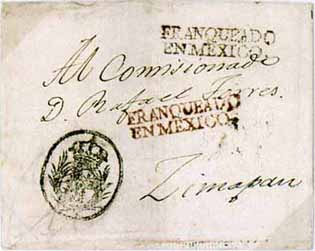 FRANQUEADO
EN MEXICO.
Al Comisionado
D. Rafael Flores.
FRANQUEADO
EN MEXICO.
Zimapan